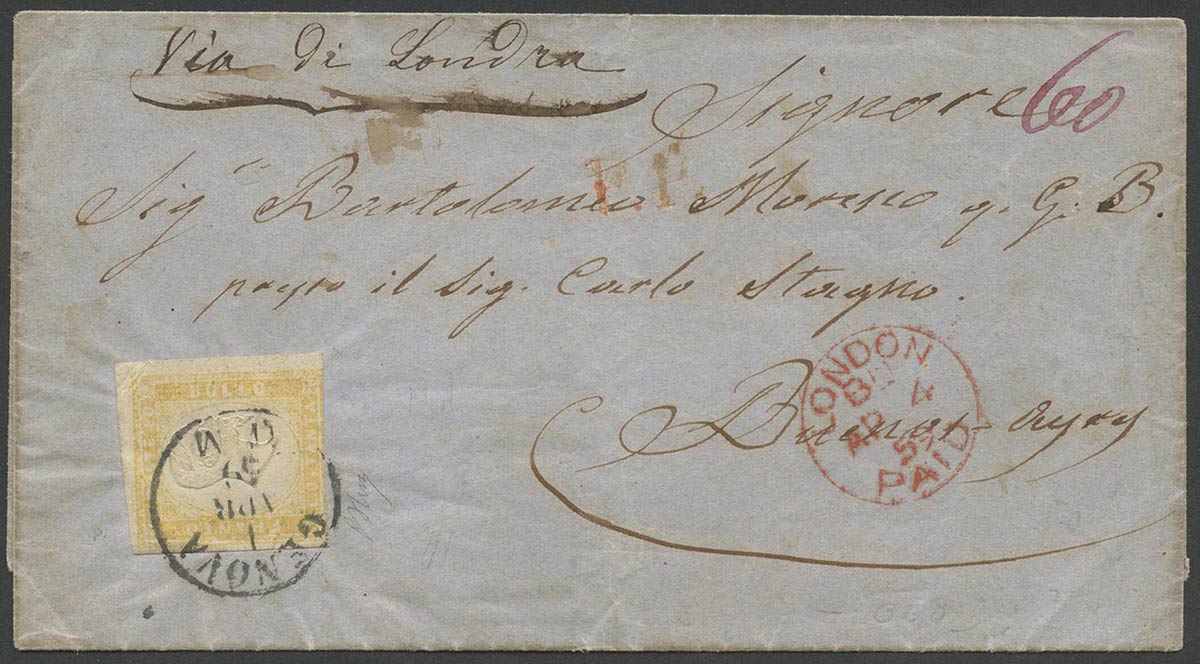 Via di Londra
Signore 60
Sig.re Bartolomeo Moreno q. G. B.
presso il Sig. Carlo Stagno.
Buenos-ayres
LONDON
4
AP
PAID
GENOVA
APR
59